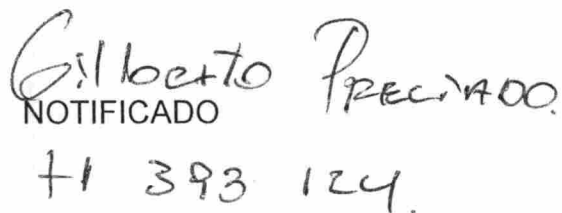 Gilberto PRECIADO.
NOTIFICADO
71 393 124.